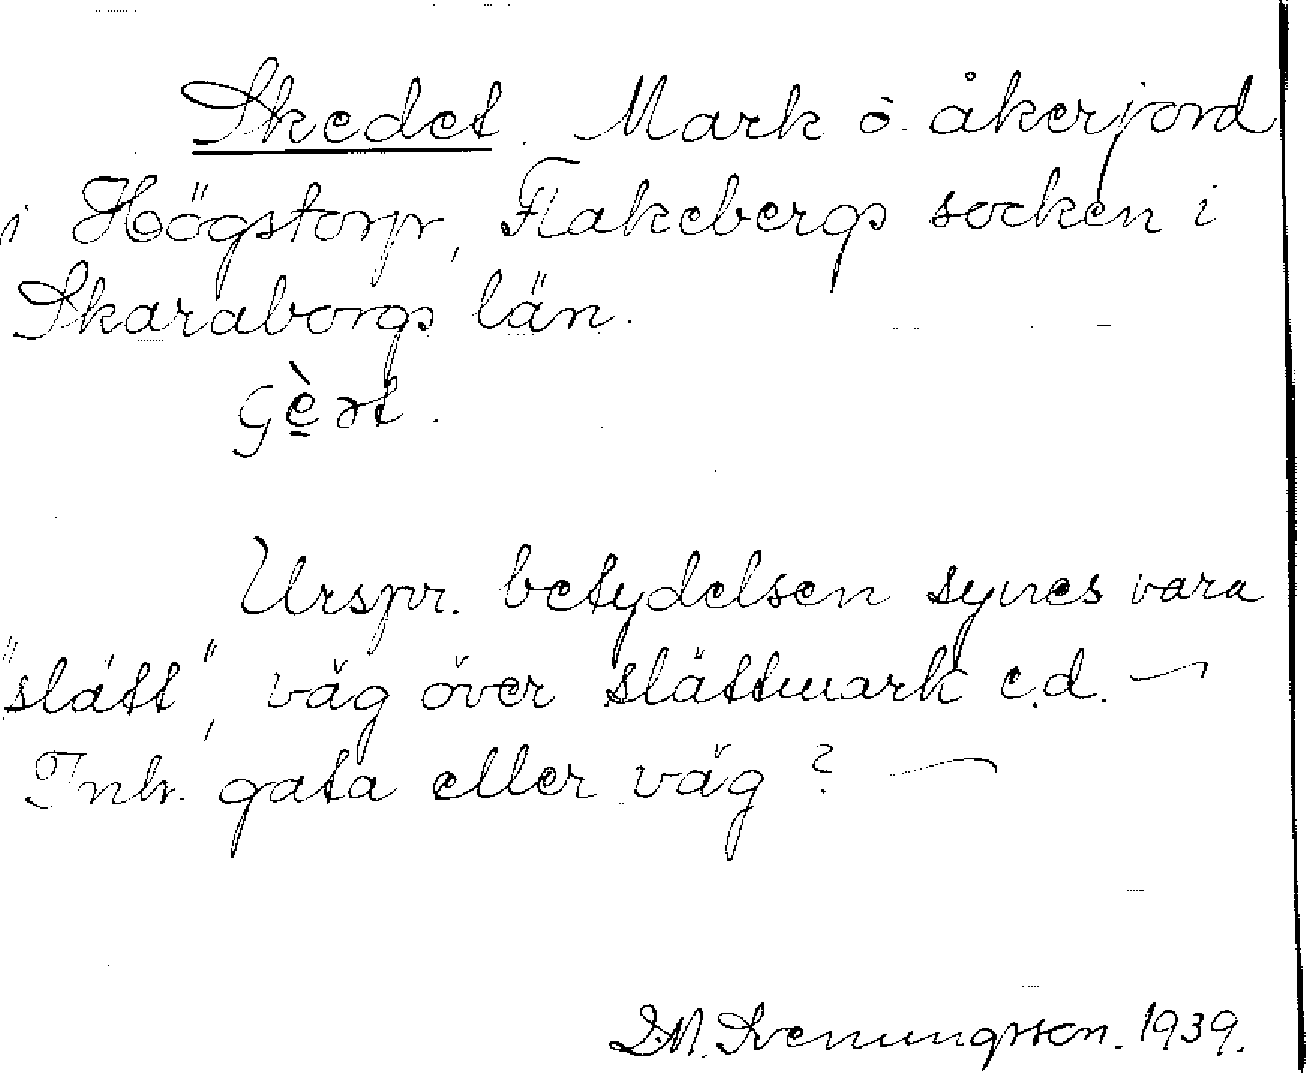 Skedet. Mark o. åkerjord
i Högstorp, Flakebergs socken i
Skaraborgs län.
Urspr. betydelsen synes vara
"slätt", väg över slättmark e.d. —
Inb. gata eller väg? —
S.M. Svenungsson. 1939.